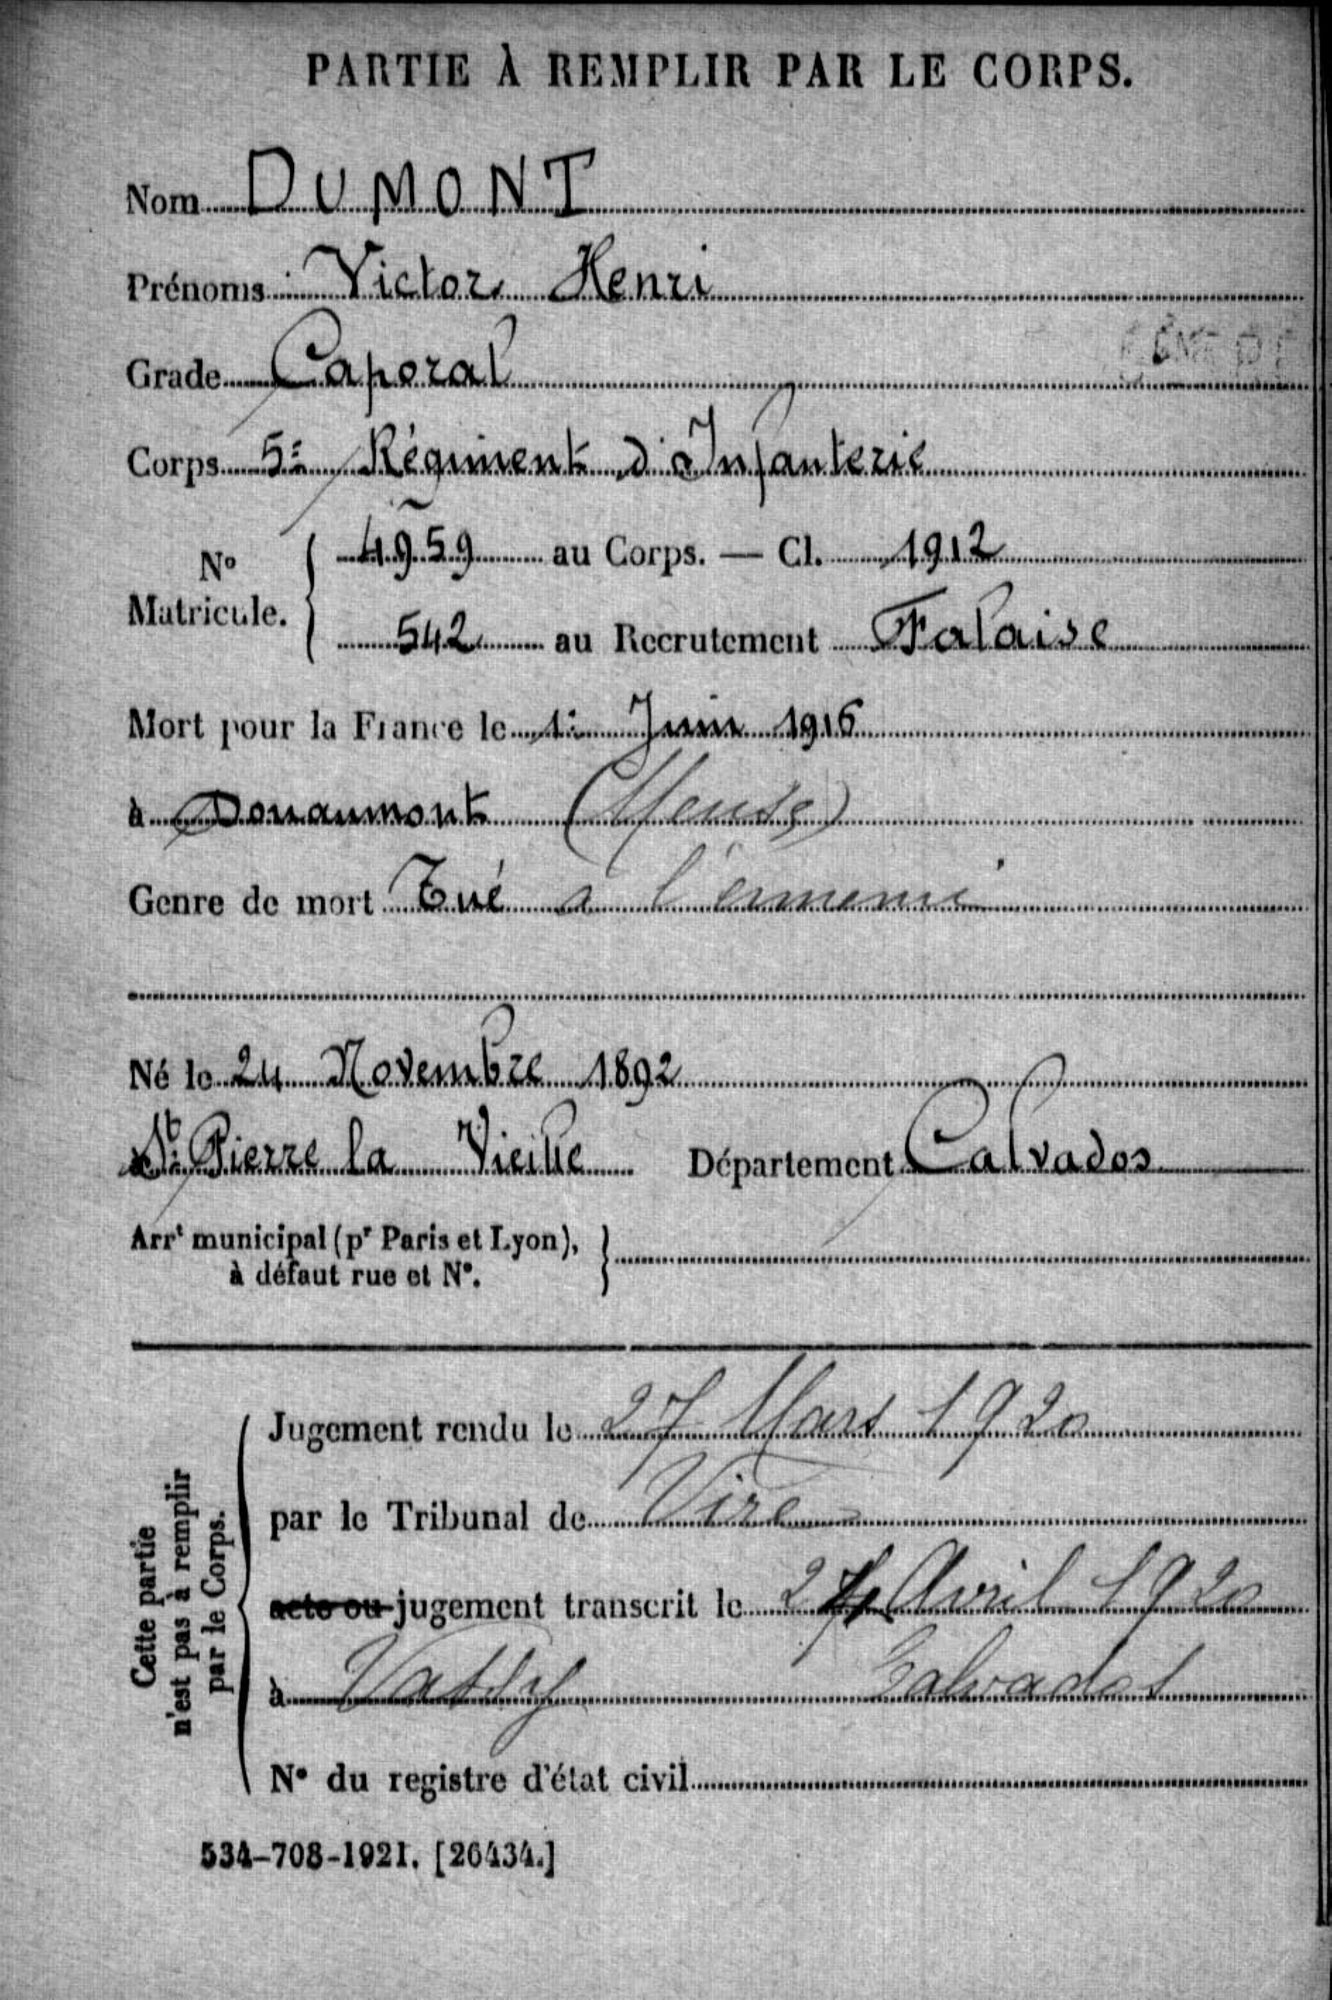 PARTIE À REMPLIR PAR LE CORPS.
Nom DUMONT
Prénoms Victor Henri
Grade Caporal
Corps 5e Régiment d'Infanterie
No Matricule. { 4959 au Corps. — Cl. 1912
542 au Recrutement Falaise
Mort pour la France le 1er Juin 1916
à Douaumont (Meuse)
Genre de mort Tué à l'ennemi
Né le 24 Novembre 1892
à St Pierre la Vieille Département Calvados
Arrt municipal (pr Paris et Lyon),
à défaut rue et No.
Cette partie
n'est pas à remplir
par le Corps.
Jugement rendu le 27 Mars 1920
par le Tribunal de Vire
acte ou jugement transcrit le Avril 1920
à Vassy Calvados
No du registre d'état civil
534-708-1921. [26434.]